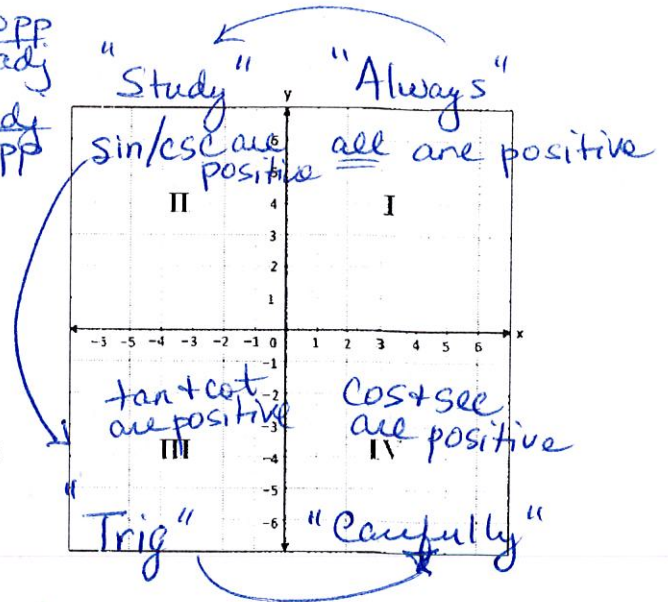 opp
adj
adj
opp
"Study" "Always"
y
sin/csc are positive
all are positive
II I
6
5
4
3
2
1
-5 -5 -4 -3 -2 -1 0 1 2 3 4 5 6 x
-1
-2
-3
-4
-5
-6
tan + cot are positive
cos + sec are positive
III IV
"Trig" "Carefully"